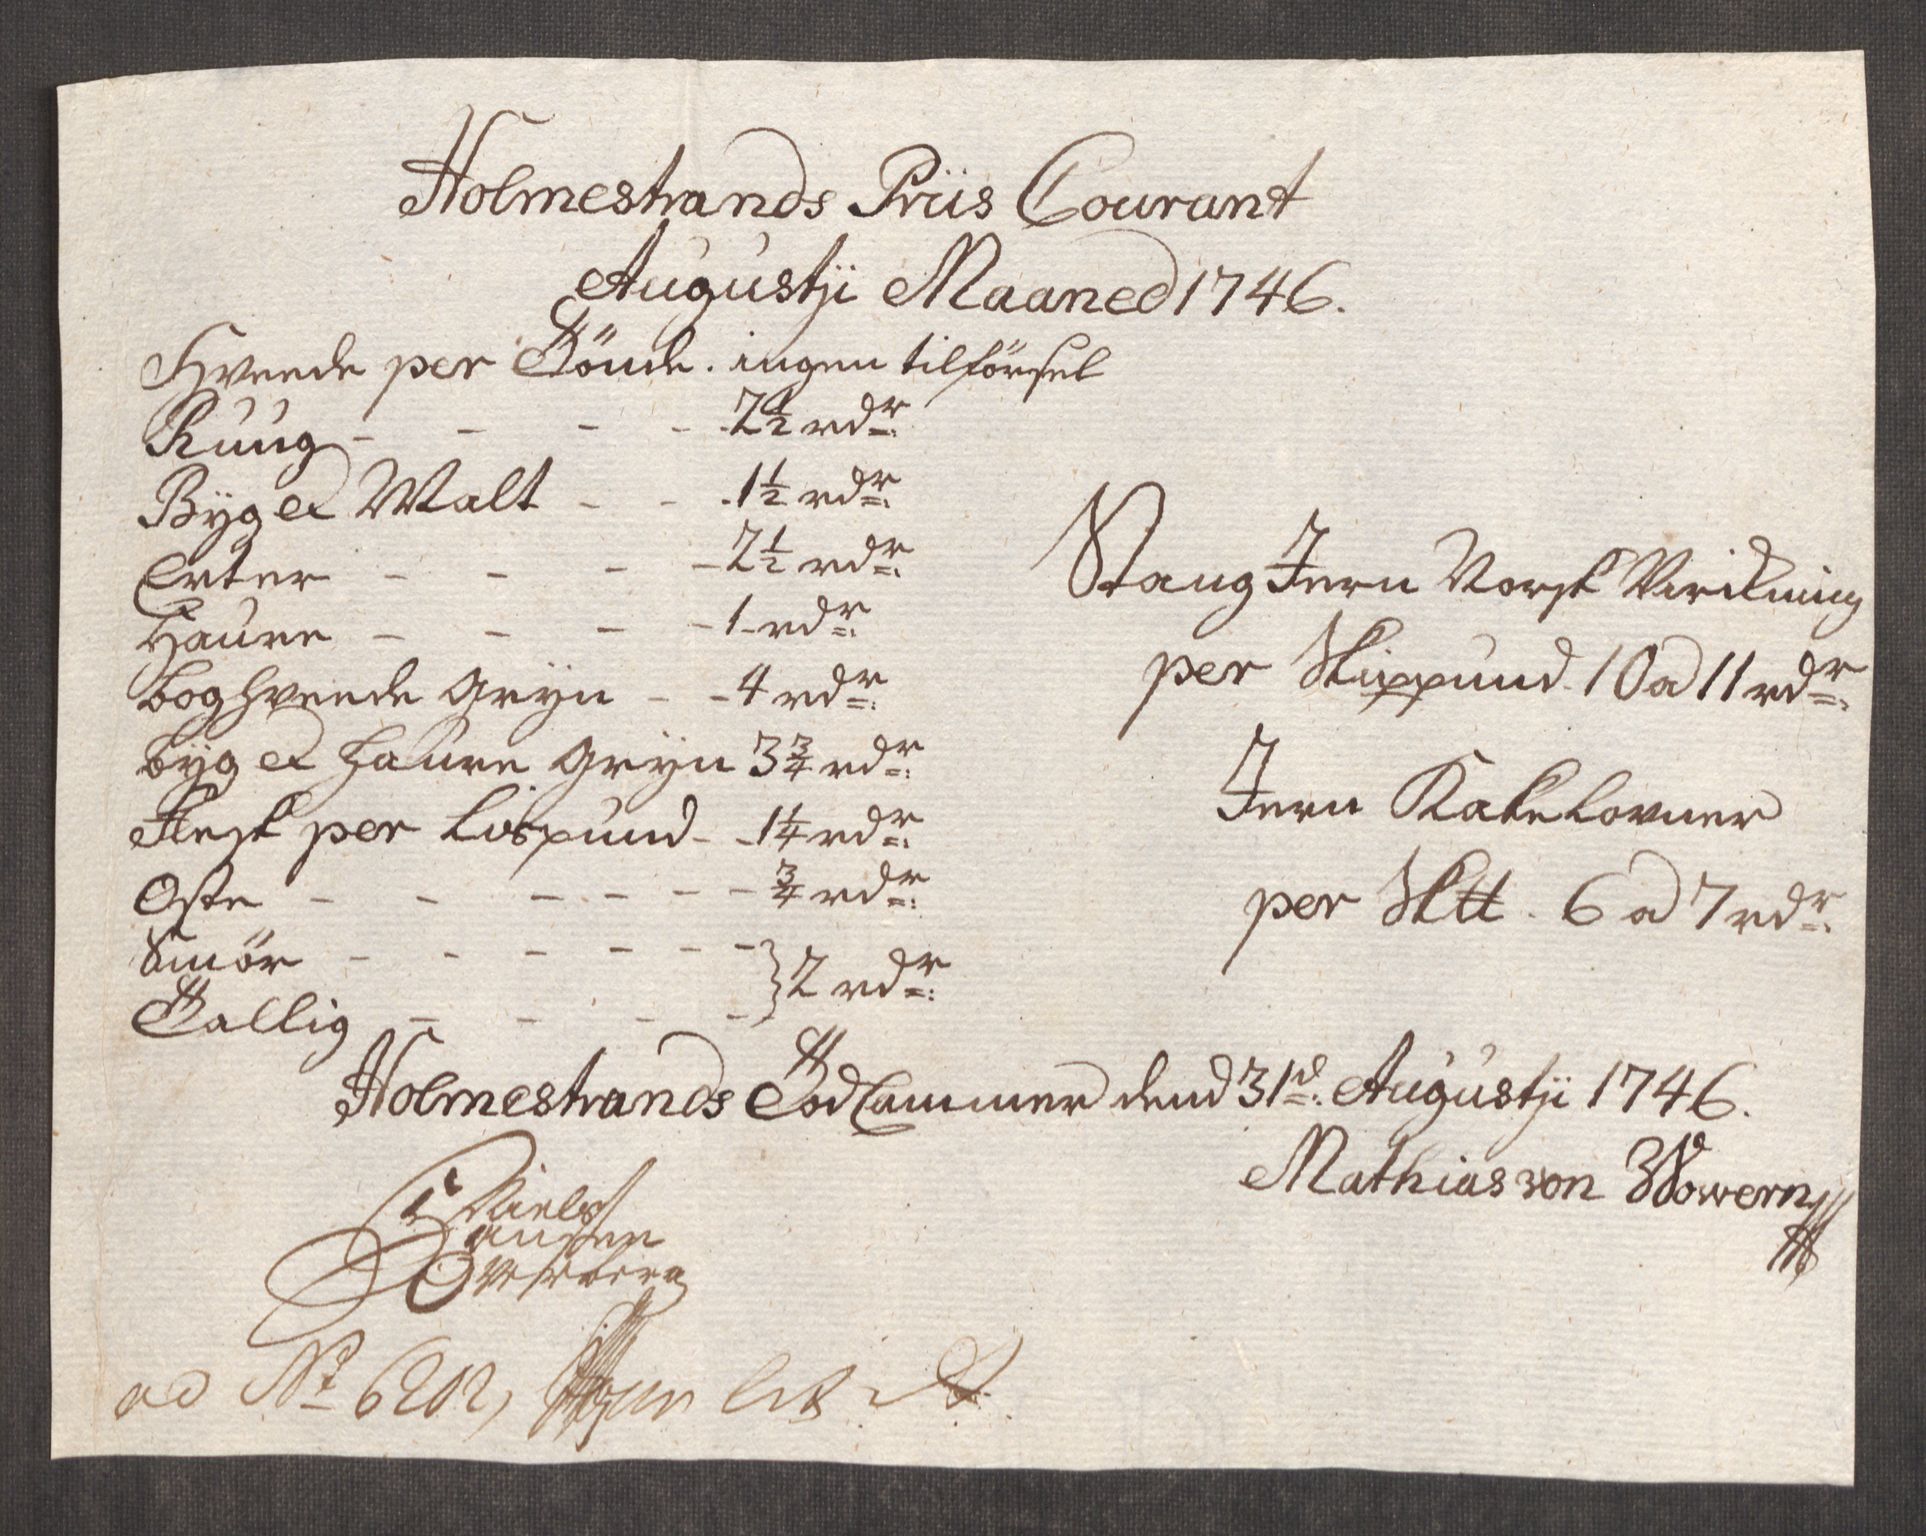 Holmestrands Priis Courant
Augustji Maaned 1746.
Hveede per Tönde. ingen tilförsel
Ruug - - - - 2½ rdr:
Byg et Malt - - - 1½ rdr:
Erter - - - - 2½ rdr:
Haure - - - - 1 - rdr:
boghveede Gryn - - 4 rdr:
byg et haure Gryn 3¾ rdr:
Flesk per Lispund - - 1¼ rdr:
Oste - - - - - - ¾ rdr:
Smör - - - - - - } 2 rdr:
Tallig - - - -
Stang Jern Norsk Virkning
per Skippund. 10 a 11 rdr:
Jern Kakelovner
per Sktt. 6 a 7 rdr:
Holmestrands Told Cammer dend 31te: Augustji 1746.
Mathias von Wowern
Niels
Hansen
ad No 6202,